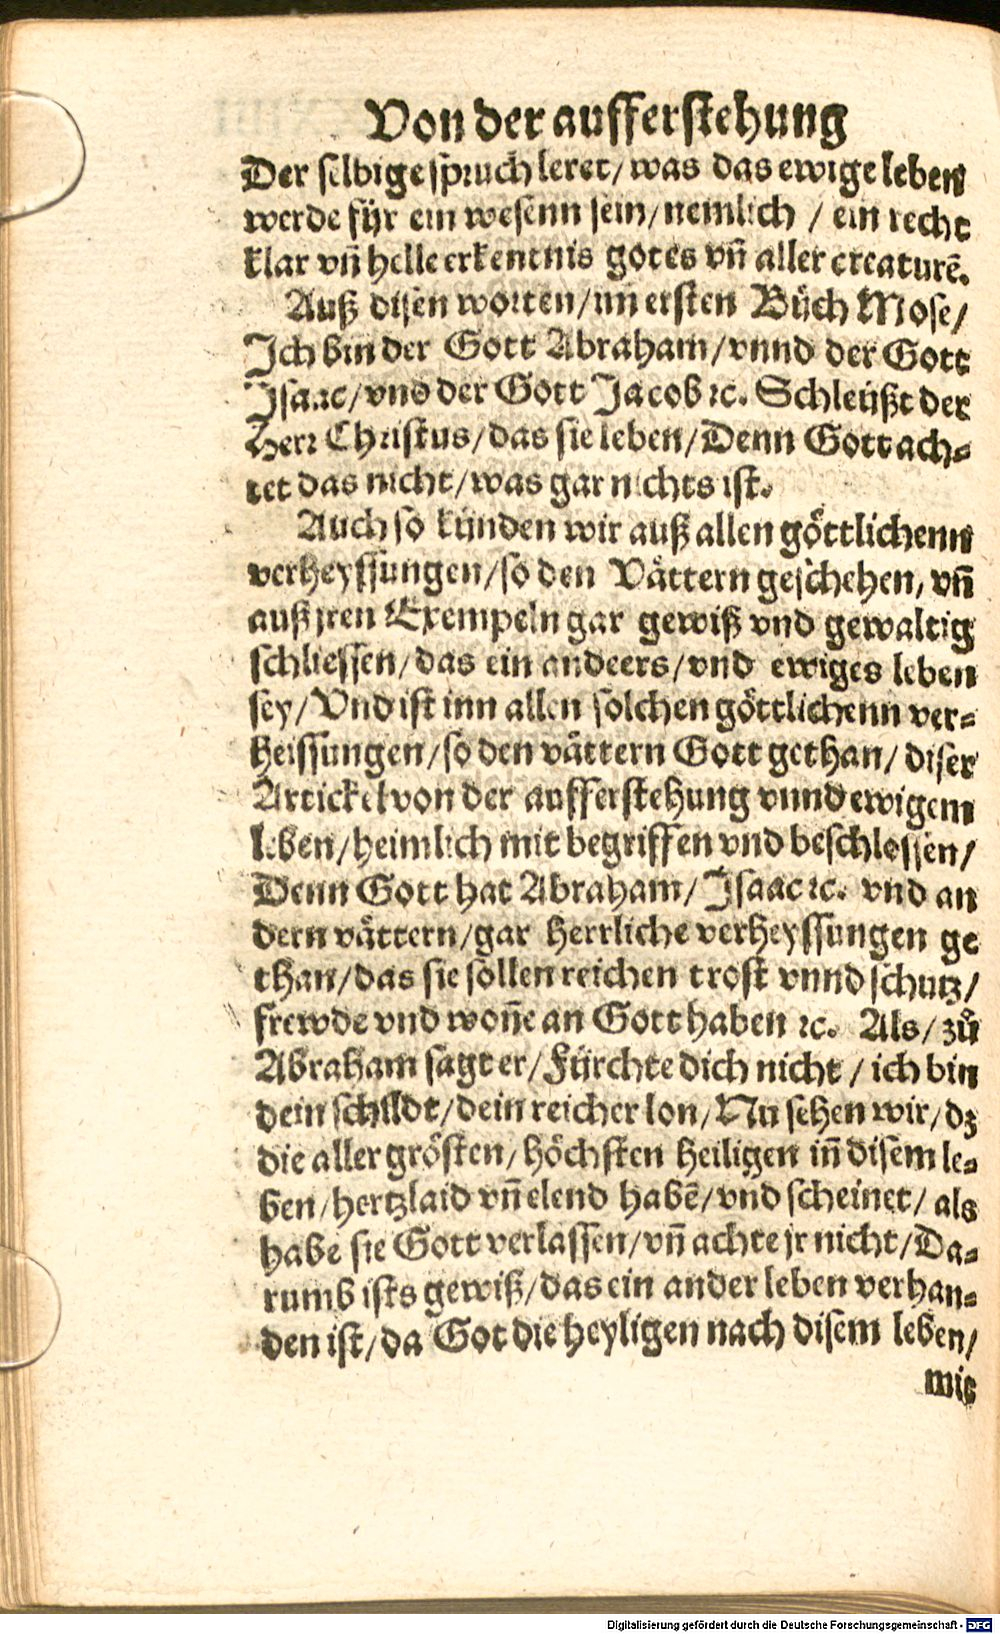 Von der aufferstehung
Der selbige spruch leret/ was das ewige leben
werde für ein wesenn sein/ nemlich / ein recht
klar vñ helle erkentnis gotes vñ aller creaturē.
Auß disen worten/ im ersten Bůch Mose/
Ich bin der Gott Abraham/ vnnd der Gott
Isaac/ vnd der Gott Jacob ꝛc. Schleüßt der
Herr Christus/ das sie leben/ Denn Gott ach⸗
tet das nicht/ was gar nichts ist.
Auch so künden wir auß allen göttlichenn
verheyssungen/ so den Vättern geschehen, vñ
auß jren Exempeln gar gewiß vnd gewaltig
schliessen/ das ein andeers/ vnd ewiges leben
sey/ Vnd ist inn allen solchen göttlichenn ver⸗
heissungen/ so den vättern Gott gethan/ diser
Artickel von der aufferstehung vnnd ewigem
leben/ heimlich mit begriffen vnd beschlossen/
Denn Gott hat Abraham/ Isaac ꝛc. vnd an
dern vättern/ gar herrliche verheyssungen ge
than/ das sie sollen reichen trost vnnd schutz/
frewde vnd woñe an Gott haben ꝛc. Als/ zů
Abraham sagt er/ Fürchte dich nicht / ich bin
dein schildt/ dein reicher lon/ Nu sehen wir/ dz
die aller grösten/ höchsten heiligen iñ disem le⸗
ben/ hertzlaid vñ elend habē/ vnd scheinet/ als
habe sie Gott verlassen/ vñ achte jr nicht/ Da⸗
rumb ists gewiß/ das ein ander leben verhan⸗
den ist/ da Got die heyligen nach disem leben/
mit
Digitalisierung gefördert durch die Deutsche Forschungsgemeinschaft - DFG